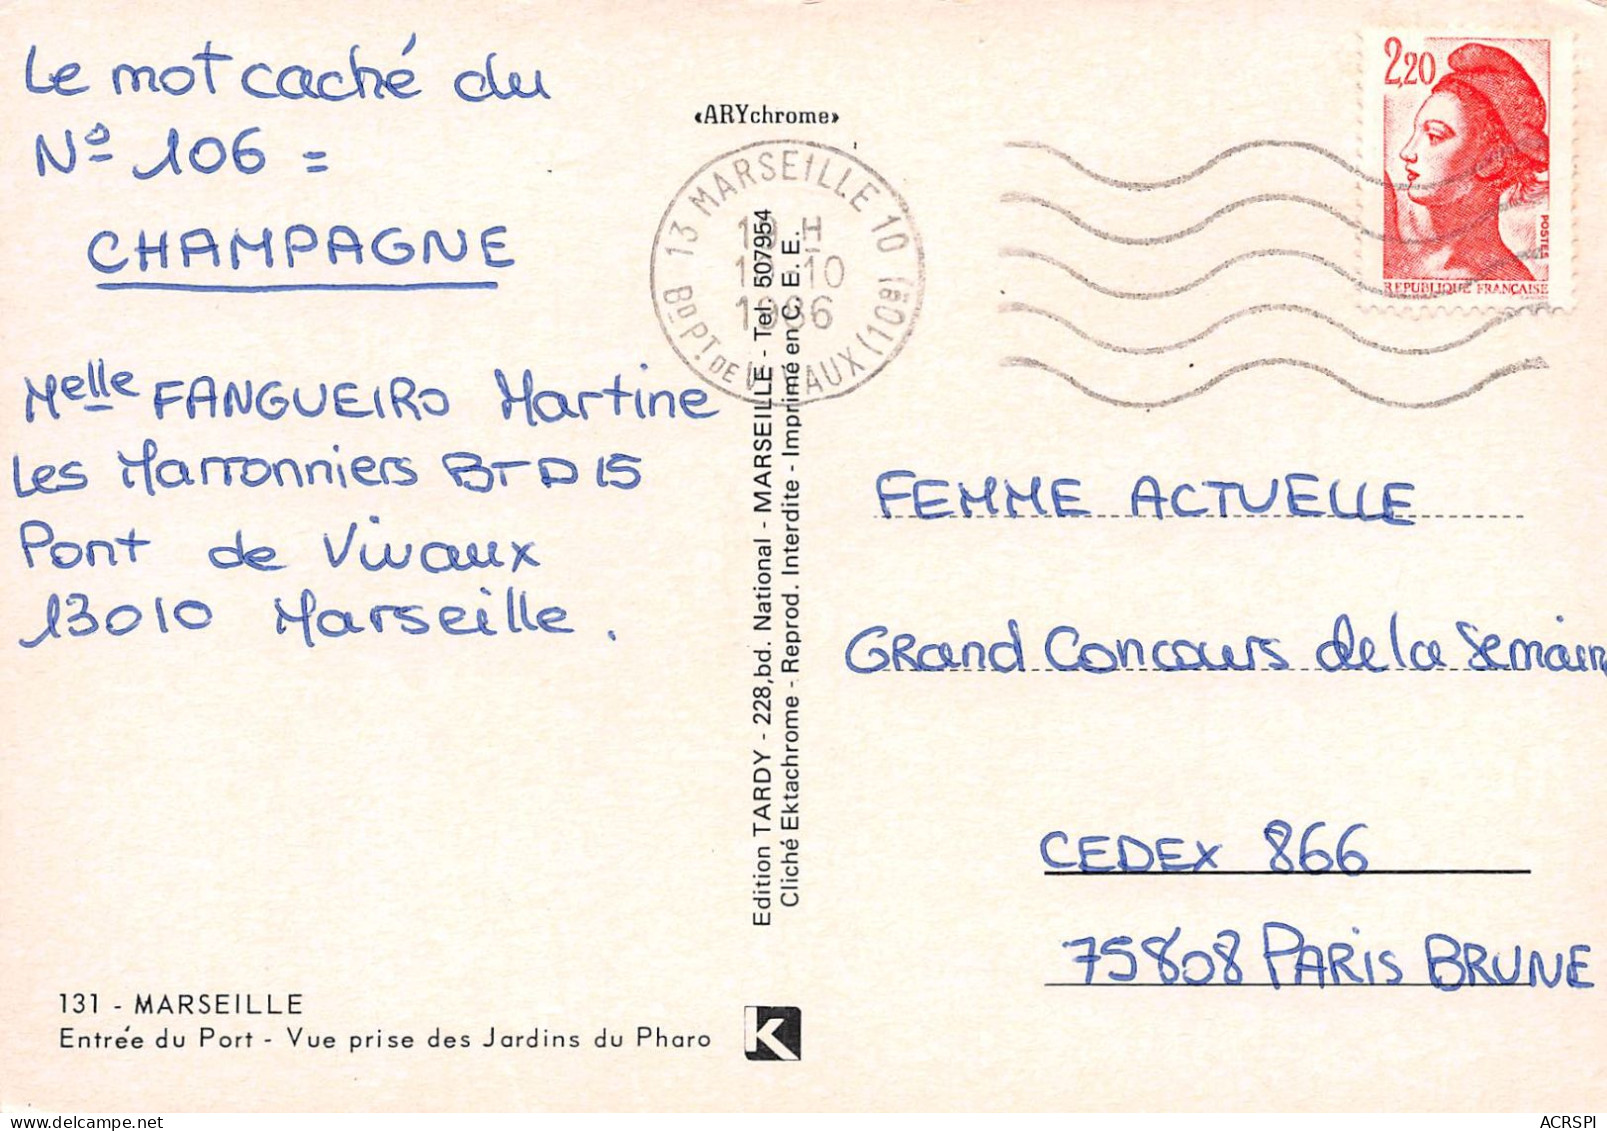 Le mot caché du
Nº 106 =
CHAMPAGNE
Melle FANGUEIRO Martine
Les Marronniers BT D15
Pont de Vivaux
13010 Marseille.
131 - MARSEILLE
Entrée du Port - Vue prise des Jardins du Pharo
«ARYchrome»
13 MARSEILLE 10
19 H
10
1986
Bd PT. DE VIVAUX (10E)
Edition TARDY - 228,bd. National - MARSEILLE - Tel 507954
Cliché Ektachrome - Reprod. Interdite - Imprimé en C. E. E.
K
2,20
POSTES
REPUBLIQUE FRANÇAISE
FEMME ACTUELLE
GRand Concours de la Semain
CEDEX 866
75808 PARIS BRUNE
ACRSPI